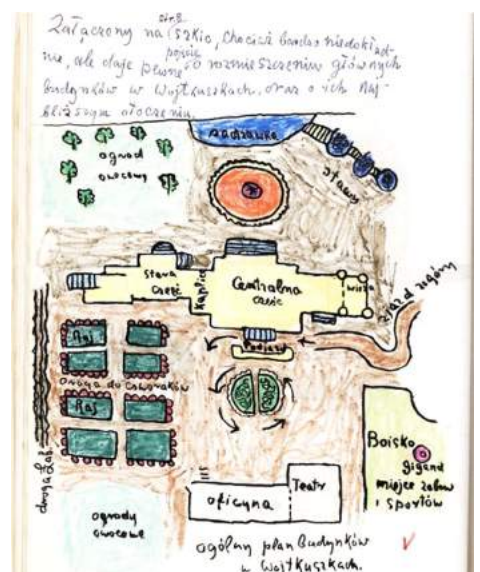 Załączony na str. 8 szkic, chociaż bardzo niedokład-
ny, ale daje pewne pojęcie o rozmieszczeniu głównych
budynków w Wojtkuszkach, oraz o ich naj-
bliższym otoczeniu.
sadzawka
ogród
owocowy
stawy
Stara
część
Kaplica
Centralna
część
wieża
zjazd z góry
Podjazd
Raj
Droga do czworaków
Raj
droga
Boisko
gigand
miejsce zabaw
i sportów
Teatr
oficyna
ogrody
owocowe
ogólny plan Budynków
w Wojtkuszkach.